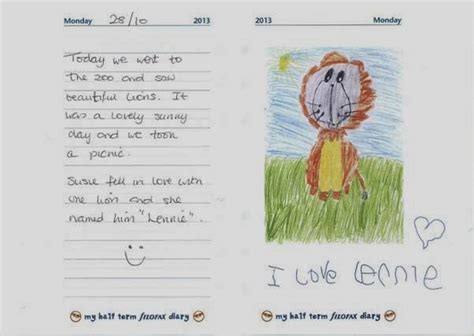 Monday 28/10 2013
Today we went to
the zoo and saw
beautiful lions. It
was a lovely sunny
day and we took
a picnic.
Susie fell in love with
one lion and she
named him "Lennie".
my half term FILOFAX diary
2013 Monday
I LOVE Lennie
my half term FILOFAX diary